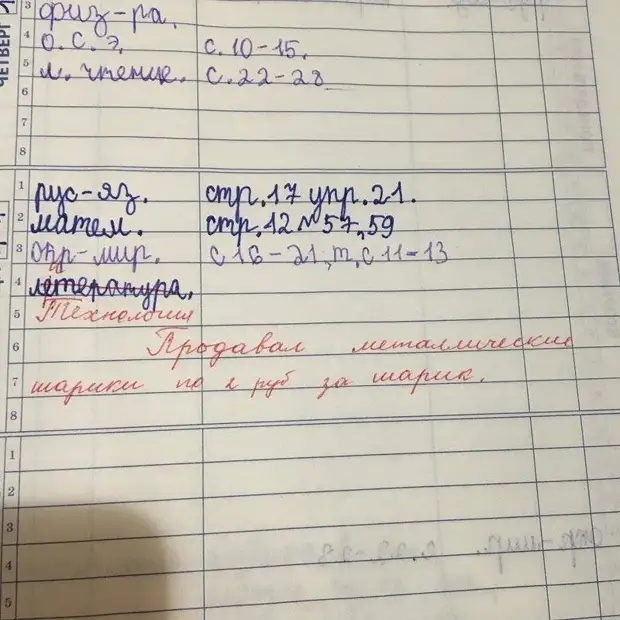 ЧЕТВЕРГ
3 физ-ра.
4 о.с.э. с.10-15.
5 л. чтение. с.22-28
6
7
8
1 рус-яз. стр.17 упр.21.
2 матем. стр.12 №57,59
3 окр-мир. с 16-21, т, с 11-13
4 летература.
5 Технология
6 Продавал металлические
7 шарики по 2 руб за шарик.
8
1
2
3
4
5